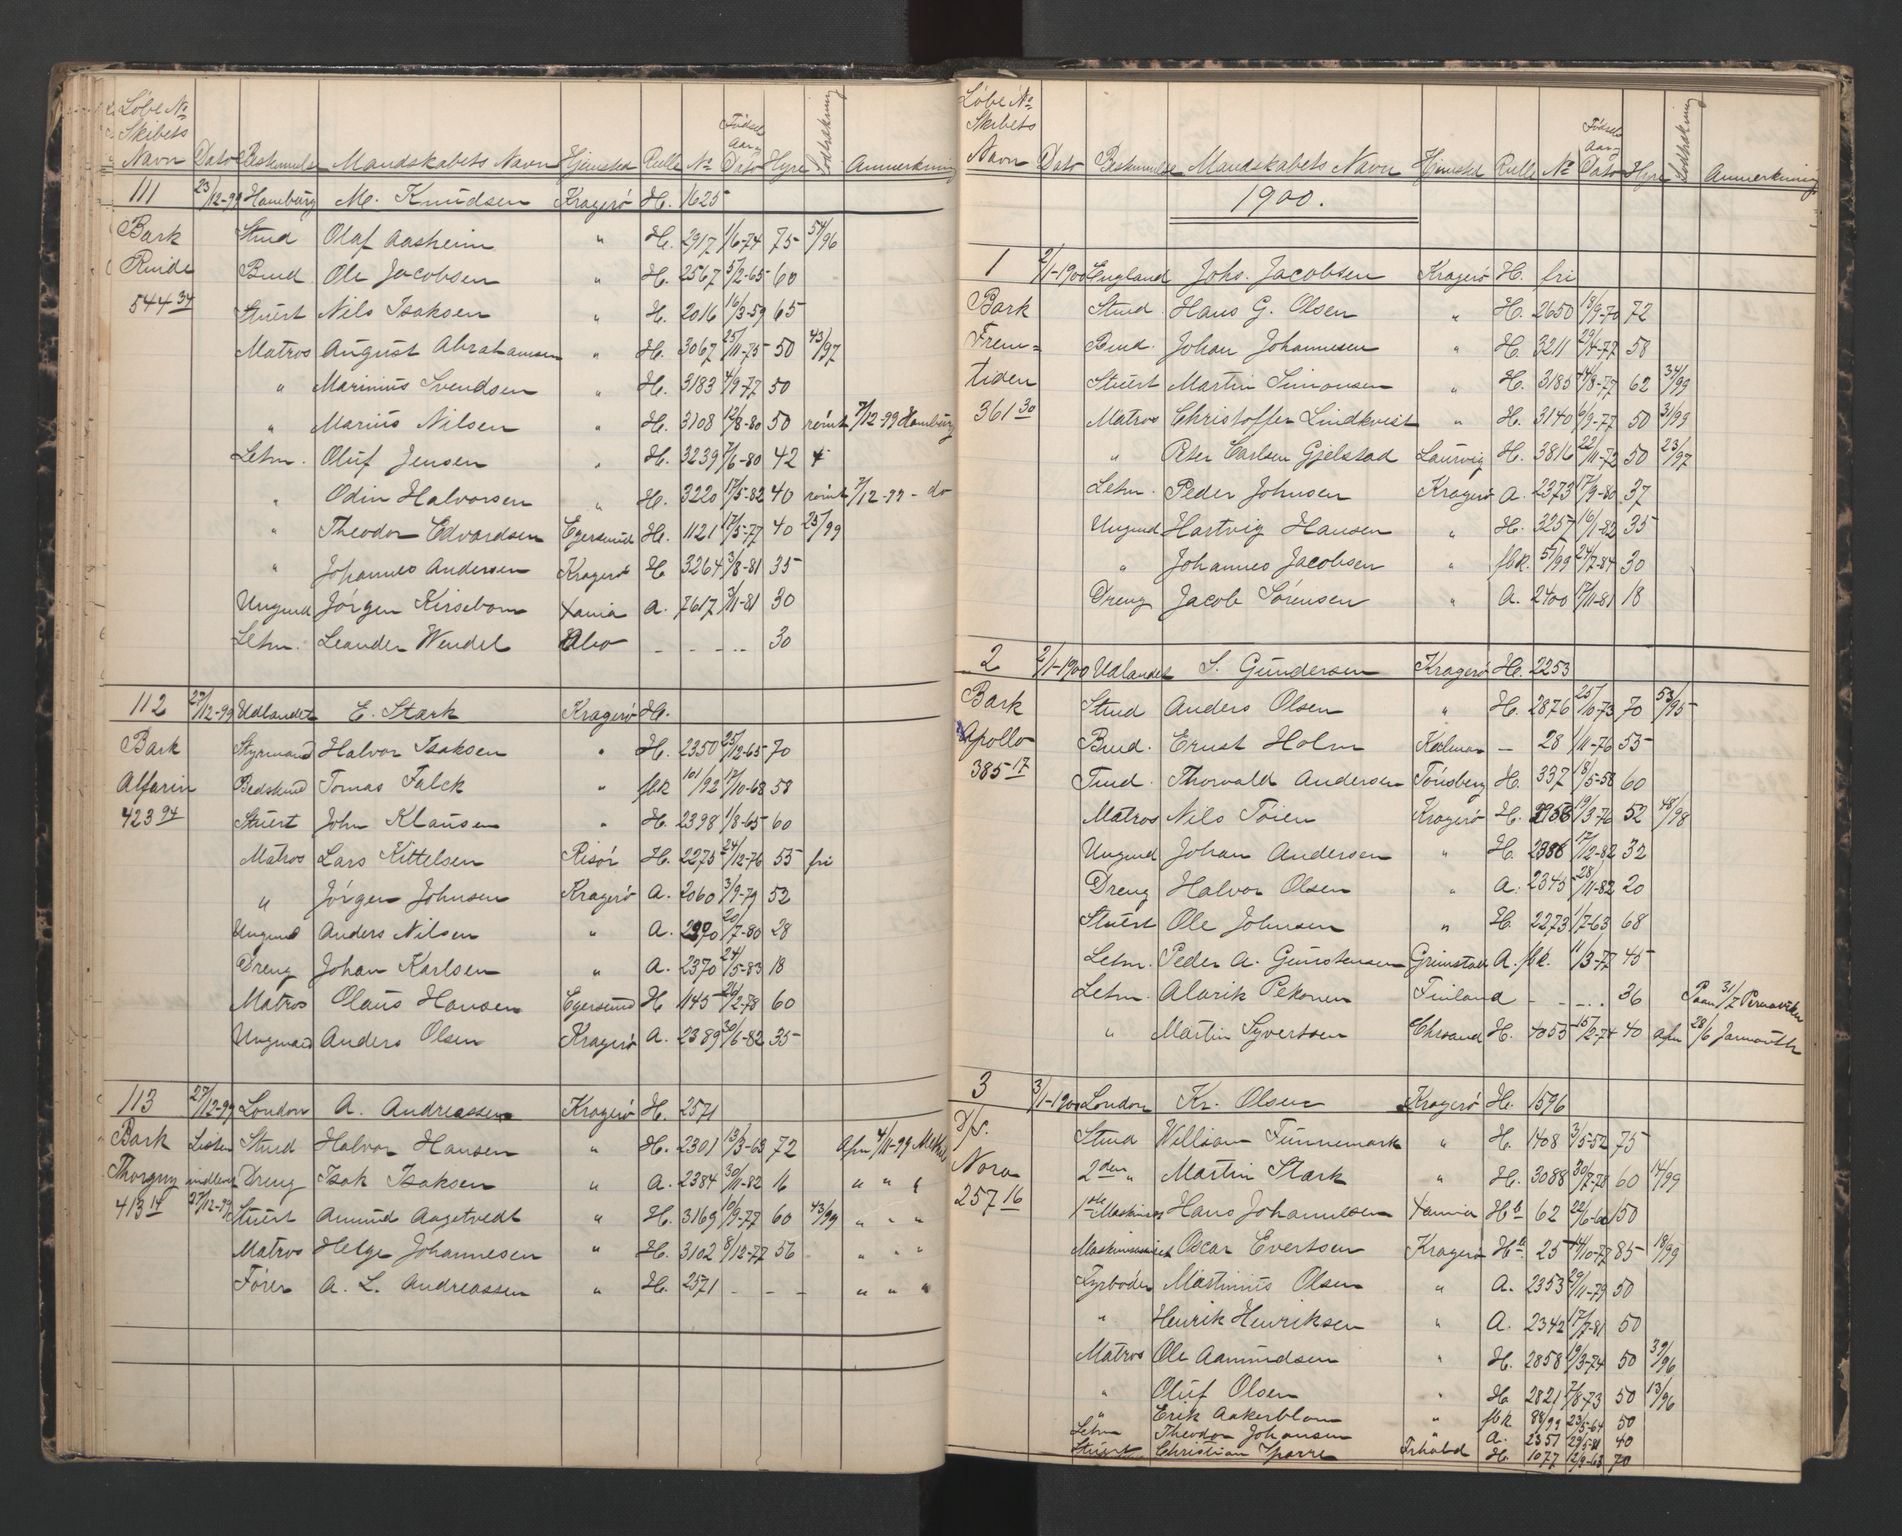 Løbe No
Skibets
Navn Dato Bestemmelse Mandskabets Navn Hjemsted Rulle No Fødsels Aar Dato Hyre Anmerkning
111 23/12-99 Hamburg M. Knudsen Kragerø H. 1625
Bark Stmd Olaf Aasheim " H. 2917 1/6-74 75 54/96
Ruide Bmd Ole Jacobsen " H. 2567 5/2-65 60
544 34 Stuert Nils Isaksen " H. 2016 16/3-59 65
Matros August Abrahamsen " H. 3067 25/11-75 50 43/97
" Marinius Svendsen " H. 3183 4/9-77 50
" Marius Nilsen " H. 3108 12/8-80 50 rømt 7/12-99 Hamburg
Letm. Oluf Jensen " H. 3239 7/6-80 42
" Odin Halvorsen " H. 3220 17/5-82 40 rømt 7/12-99 - do
" Theodor Edvardsen Egersund H. 1121 17/5-77 40 25/99
" Johannes Andersen Kragerø H 3264 3/8-81 35
Ungmd Jørgen Kirsebom Xania A. 7617 3/11-81 30
Letm. Leander Wendel Abo - - - 30
112 27/12-99 Udlandet E. Stark Kragerø H.
Bark Styrmand Halvor Isaksen " H. 2350 25/12-65 70
Alfarin Bedstmd Tomas Falck " fbk 101/92 17/10-68 58
423 94 Stuert John Klausen " H. 2398 1/8-65 60
Matros Lars Kittelsen Risør H. 2275 24/12-76 55 fri
" Jørgen Johnsen Kragerø A. 2060 3/9-79 52
Ungmd Anders Nilsen " A. 2390 20/7-80 28
Dreng Johan Karlsen " A. 2370 24/5-83 18
Matros Olaus Hansen Egersund H 1145 26/2-78 60
Ungmand Anders Olsen Kragerø A. 2389 30/6-82 35
113 27/12-99 London A. Andreassen Kragerø H. 2571
Bark Listen Stmd Halvor Hansen " H. 2301 13/3-63 72 Afm 4/11-99
Thorgny indlevr Dreng Isak Isaksen " A. 2384 30/11-82 16 " " "
413 14 27/12-99 Stuert Amund Aagetvedt " H. 3169 10/9-77 60 43/99 " " "
Matros Helge Johannesen " H. 3102 8/12-77 56 " " "
Fører A. L. Andreassen " H. 2571 - - - " " "
Løbe No
Skibets
Navn Dato Bestemmelse Mandskabets Navn Hjemsted Rulle No Fødsels Aar Dato Hyre Anmerkning
1900.
1 2/1-1900 England Johs. Jacobsen Kragerø H. fri
Bark Stmd. Hans G. Olsen " H. 2650 18/9-70 72
Frem= Bmd. Johan Johannesen " H. 3211 29/4-77 58
tiden Stuert Martin Simonsen " H. 3185 14/8-77 62 34/99
361 30 Matros Christoffer Lindkvist " H. 3140 6/9-77 50 31/99
" Peter Carlsen Gjelstad Laurvig H. 3816 22/11-72 50 23/97
Letm. Peder Johnsen Kragerø A. 2373 17/9-80 37
Ungmd Hartvig Hansen " H. 3257 16/1-82 35
" Johannes Jacobsen " fbk. 57/99 24/7-84 30
Dreng Jacob Sørensen " A. 2400 17/11-81 18
2 2/1-1900 Udlandet S. Gundersen Kragerø H. 2253
Bark Stmd Anders Olsen " H. 2876 25/10-73 70 53/95
Apollo Bmd. Ernst Holm Kalmar - 28 1/11-76 55
385 17 Tmd. Thorvald Andersen Tønsberg H. 337 18/5-58 60
Matros Nils Tøien Kragerø H. 2956 19/3-76 52 48/98
Ungmd Johan Andersen " H. 2386 17/12-82 32
Dreng Halvor Olsen " A. 2345 28/11-82 20
Stuert Ole Johnsen " H. 2273 1/7-63 68
Letm. Peder A. Gunstensen Grimstad A. fbk. 11/3-77 45
Letm. Alarik Pekonen Finland - - - 36 Paam 31/7 Pernaviken
" Martin Syvertsen Chrsand H. 4053 15/2-74 40 Afm 28/6 Jarmouth
3 3/1-1900 London Kr. Olsen Kragerø H. 1576
D/s. Stmd William Tunnemark " H. 1408 3/5-52 75
Nora 2den " Martin Stark " H. 3088 30/7-78 60 14/99
257 16 1ste Maskinist Hans Johannesen Xania Hb 62 22/6-60 150
Maskinassist Oscar Evertsen Kragerø Hb. 25 14/10-77 85 18/99
Fyrbøder Mastinius Olsen " A. 2353 29/11-79 50
" Henrik Henriksen " A. 2342 17/7-81 50
Matros Ole Aamundsen " H. 2858 19/3-74 50 39/96
" Oluf Olsen " H 2821 7/8-73 50 13/96
" Erik Aakerblom " fbk 88/99 23/5-64 50
Letm Theodor Johansen " A. 2357 29/5-81 40
Stuert Christian Sparre Frhald H. 1077 12/9-63 70